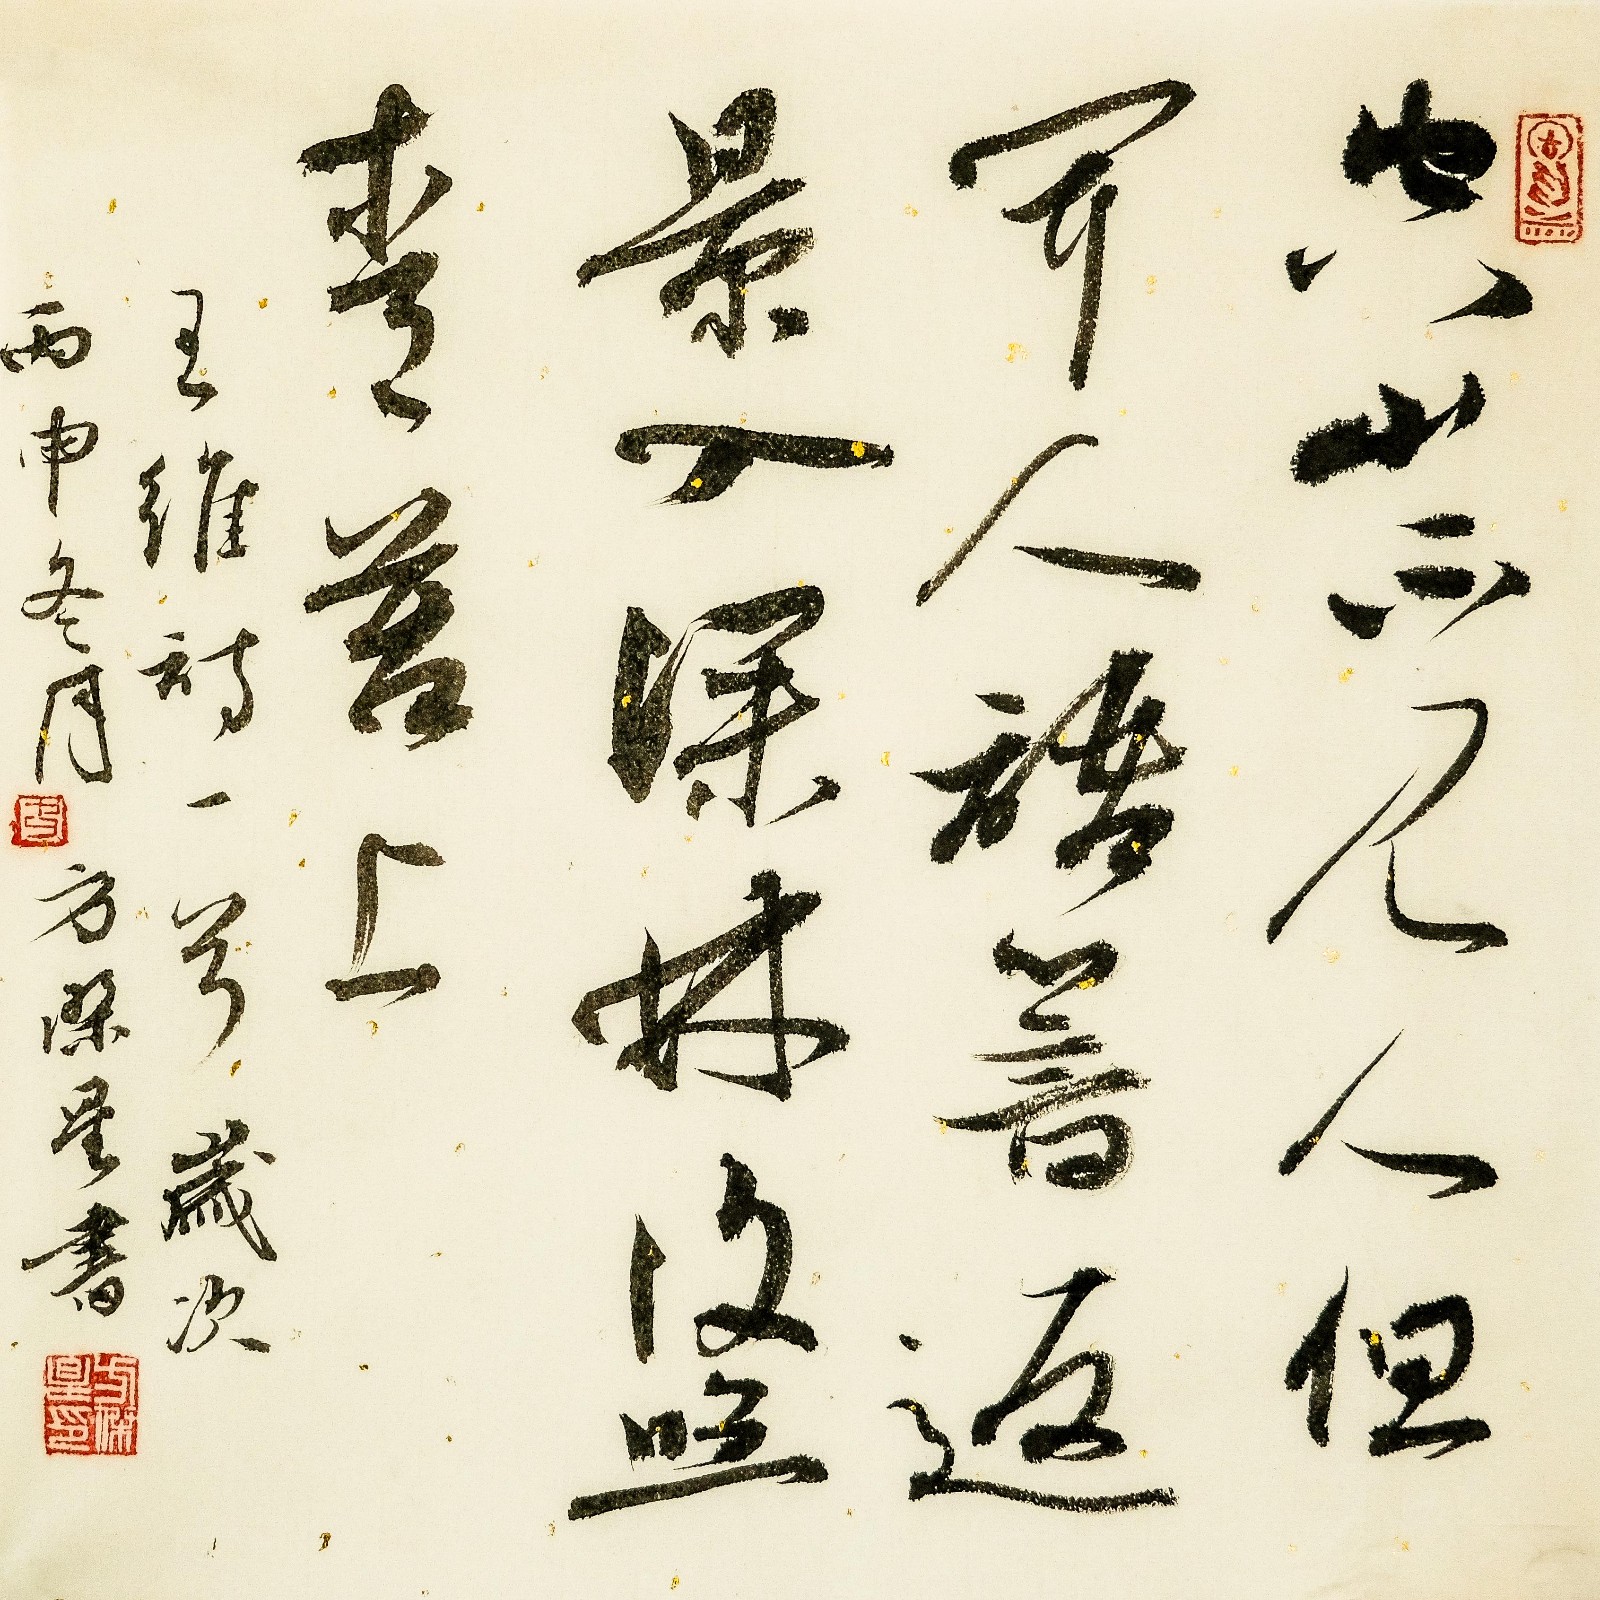 空山不見人但
聞人語響返
景入深林復照
青苔上
王維詩一首歲次
丙申冬月方傑星書
方傑星印